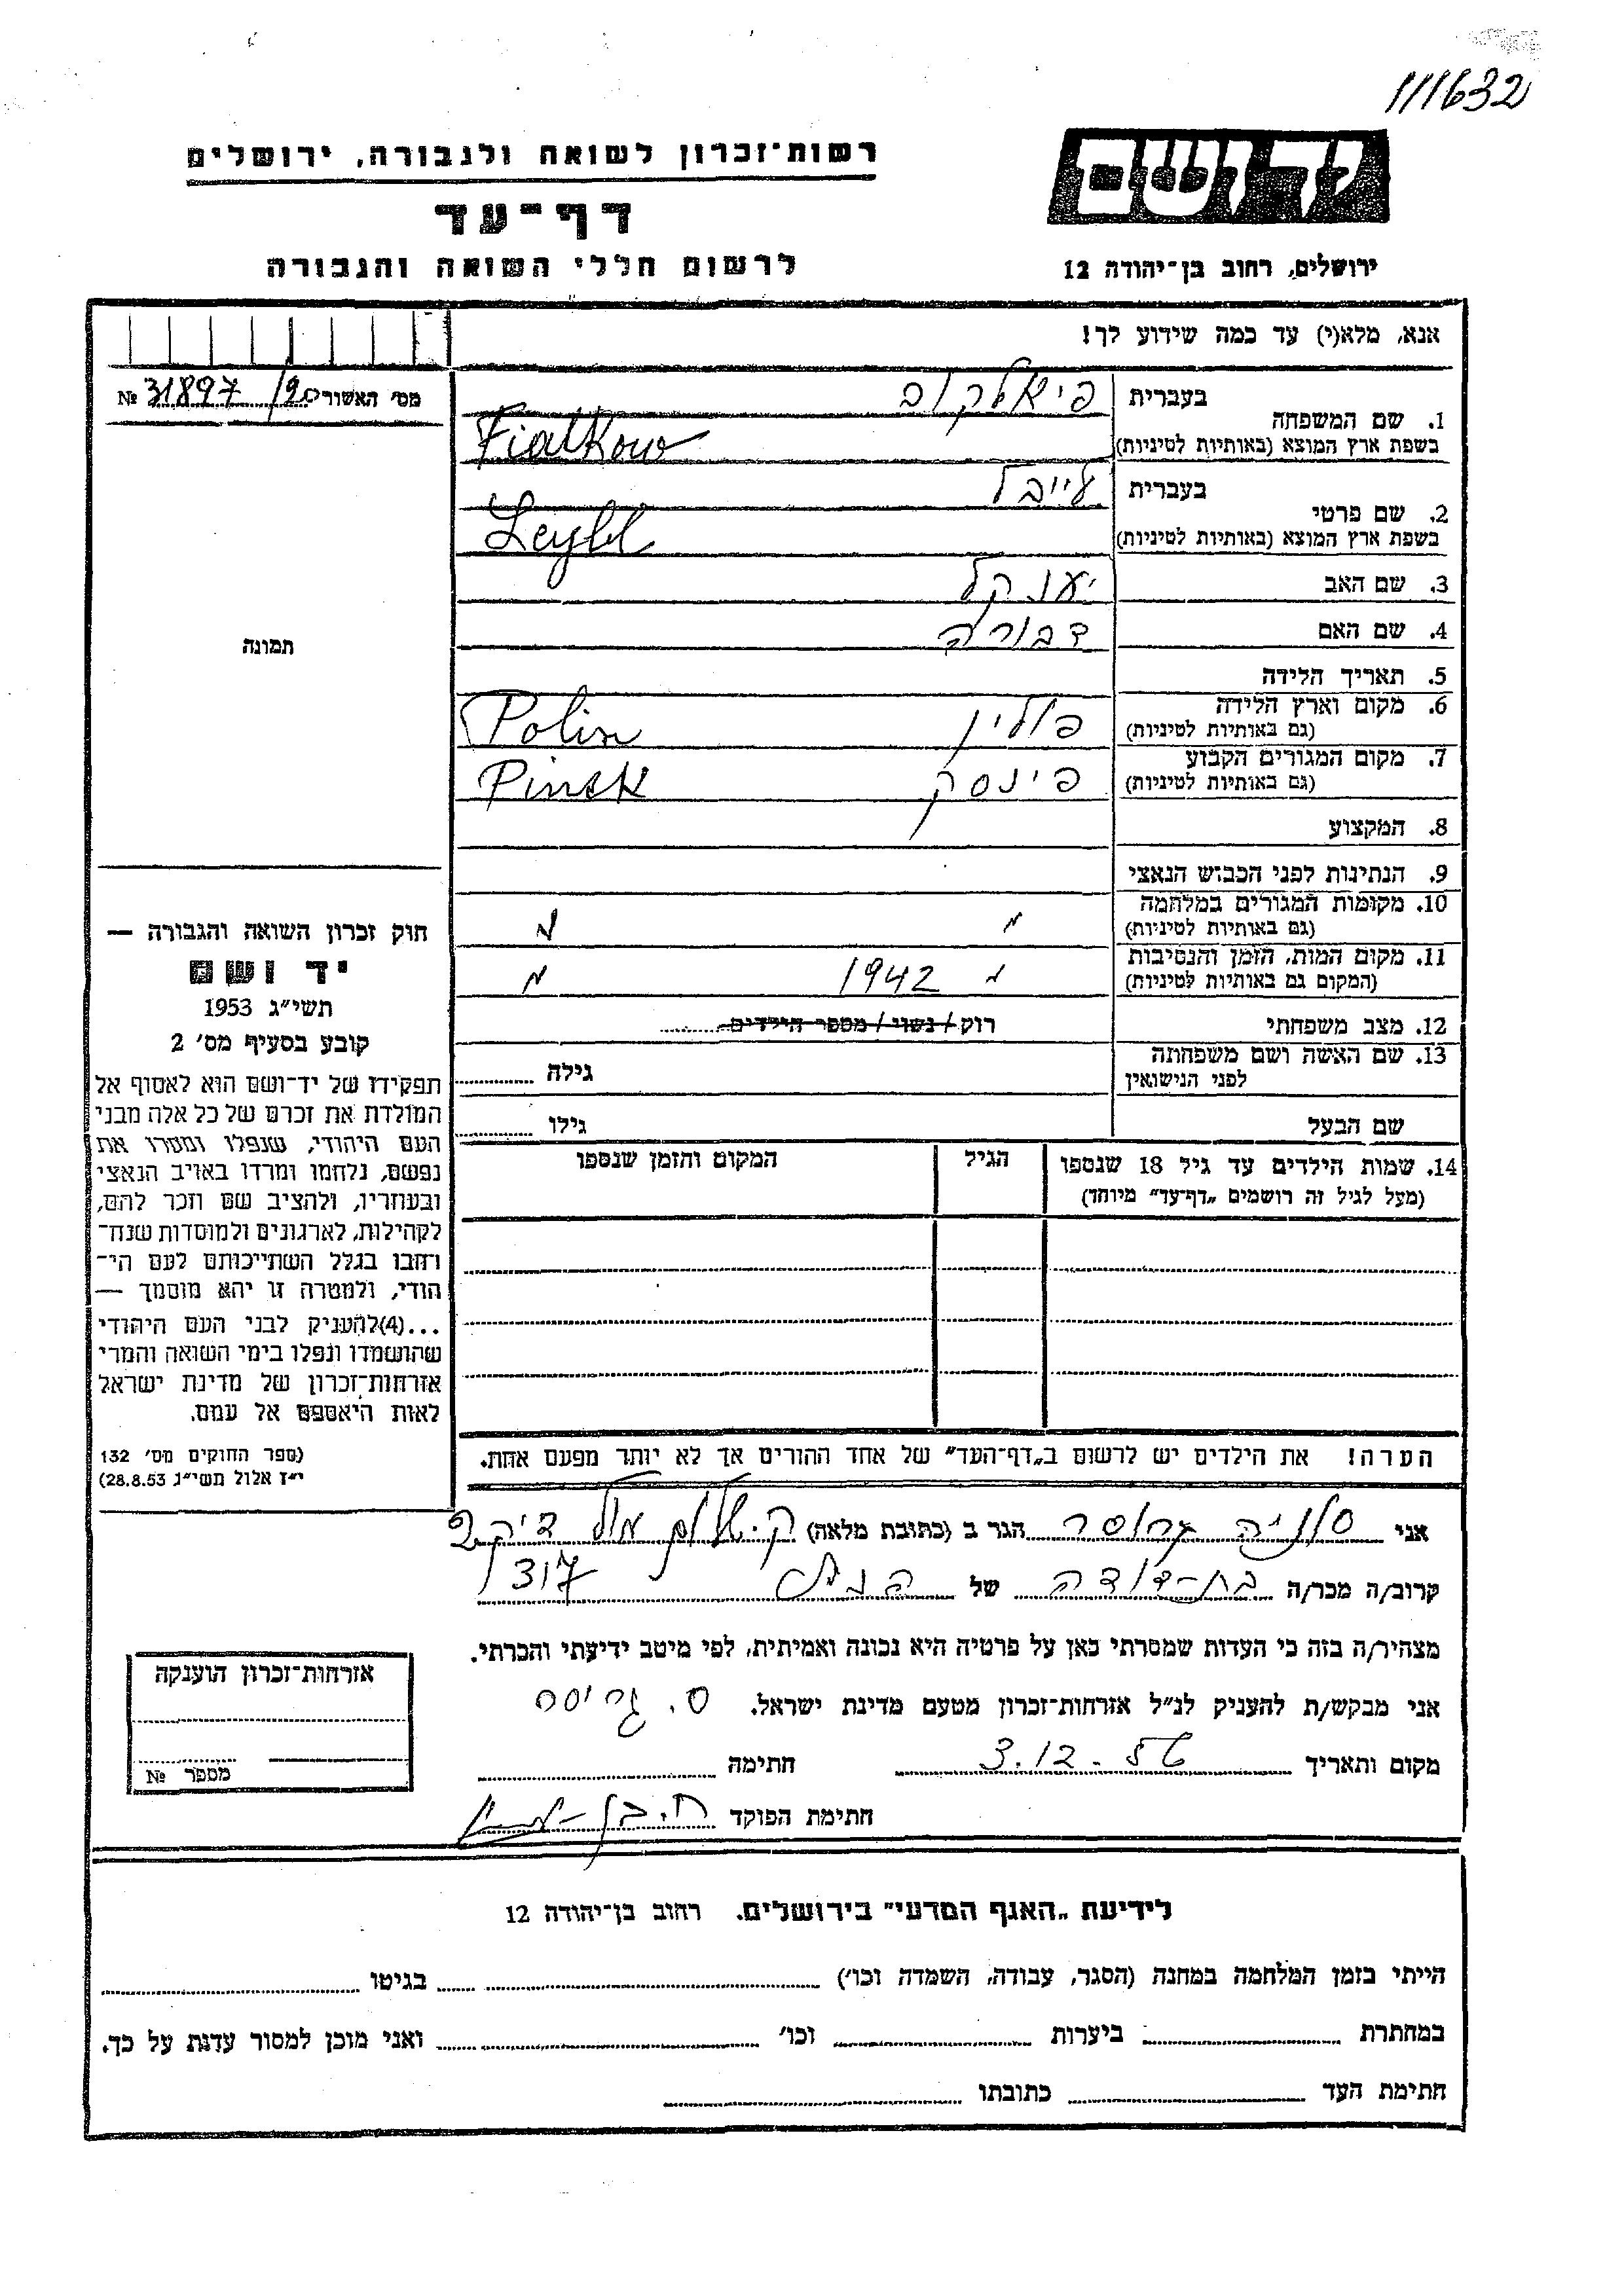 111632
יד ושם
רשות־זכרון לשואה ולגבורה, ירושלים
דף־עד
ירושלים, רחוב בן־יהודה 12
לרשום חללי השואה והגבורה
אנא, מלא(י) עד כמה שידוע לך!
מס׳ האשור 20/ 31897 №
1. שם המשפחה
בעברית פיאלקוב
בשפת ארץ המוצא (באותיות לטיניות) Fialkow
2. שם פרטי
בעברית לייבל
בשפת ארץ המוצא (באותיות לטיניות) Leybl
3. שם האב יענקל
4. שם האם דבורה
תמונה
5. תאריך הלידה
6. מקום וארץ הלידה
(גם באותיות לטיניות) פולין Polin
7. מקום המגורים הקבוע
(גם באותיות לטיניות) פינסק Pinsk
8. המקצוע
9. הנתינות לפני הכבוש הנאצי
10. מקומות המגורים במלחמה
(גם באותיות לטיניות) " "
11. מקום המות, הזמן והנסיבות
(המקום גם באותיות לטיניות) " 1942 "
12. מצב משפחתי רוק/נשוי/מספר הילדים
13. שם האשה ושם משפחתה
לפני הנישואין גילה
שם הבעל גילו
14. שמות הילדים עד גיל 18 שנספו
(מעל לגיל זה רושמים „דף־עד” מיוחד)
הגיל
המקום והזמן שנספו
חוק זכרון השואה והגבורה —
יד ושם
תשי״ג 1953
קובע בסעיף מס׳ 2
תפקידו של יד־ושם הוא לאסוף אל
המולדת את זכרם של כל אלה מבני
העם היהודי, שנפלו ומסרו את
נפשם, נלחמו ומרדו באויב הנאצי
ובעוזריו, ולהציב שם וזכר להם,
לקהילות, לארגונים ולמוסדות שנח־
רחבו בגלל השתייכותם לעם הי־
הודי, ולמטרה זו יהא מוסמך —
...(4)להעניק לבני העם היהודי
שהושמדו ונפלו בימי השואה והמרי
אזרחות־זכרון של מדינת ישראל
לאות היאספם אל עמם.
(ספר החוקים מס׳ 132
י״ז אלול תשי״ג 28.8.53)
הערה! את הילדים יש לרשום ב„דף־העד” של אחד ההורים אך לא יותר מפעם אחת.
אני סוניה גרוסר הגר ב (כתובת מלאה) ק.
קרוב/ה מכר/ה בת-דודה של הנ״ל 317/
מצהיר/ה בזה כי העדות שמסרתי כאן על פרטיה היא נכונה ואמיתית, לפי מיטב ידיעתי והכרתי.
אני מבקש/ת להעניק לנ״ל אזרחות־זכרון מטעם מדינת ישראל. ס.
מקום ותאריך 3.12-56 חתימה
חתימת הפוקד ח. בן-
אזרחות־זכרון הוענקה
מספר №
לידיעת „האגף המדעי” בירושלים. רחוב בן־יהודה 12
הייתי בזמן המלחמה במחנה (הסגר, עבודה, השמדה וכו׳) בגיטו
במחתרת ביערות וכו׳ ואני מוכן למסור עדות על כך.
חתימת העד כתובתו